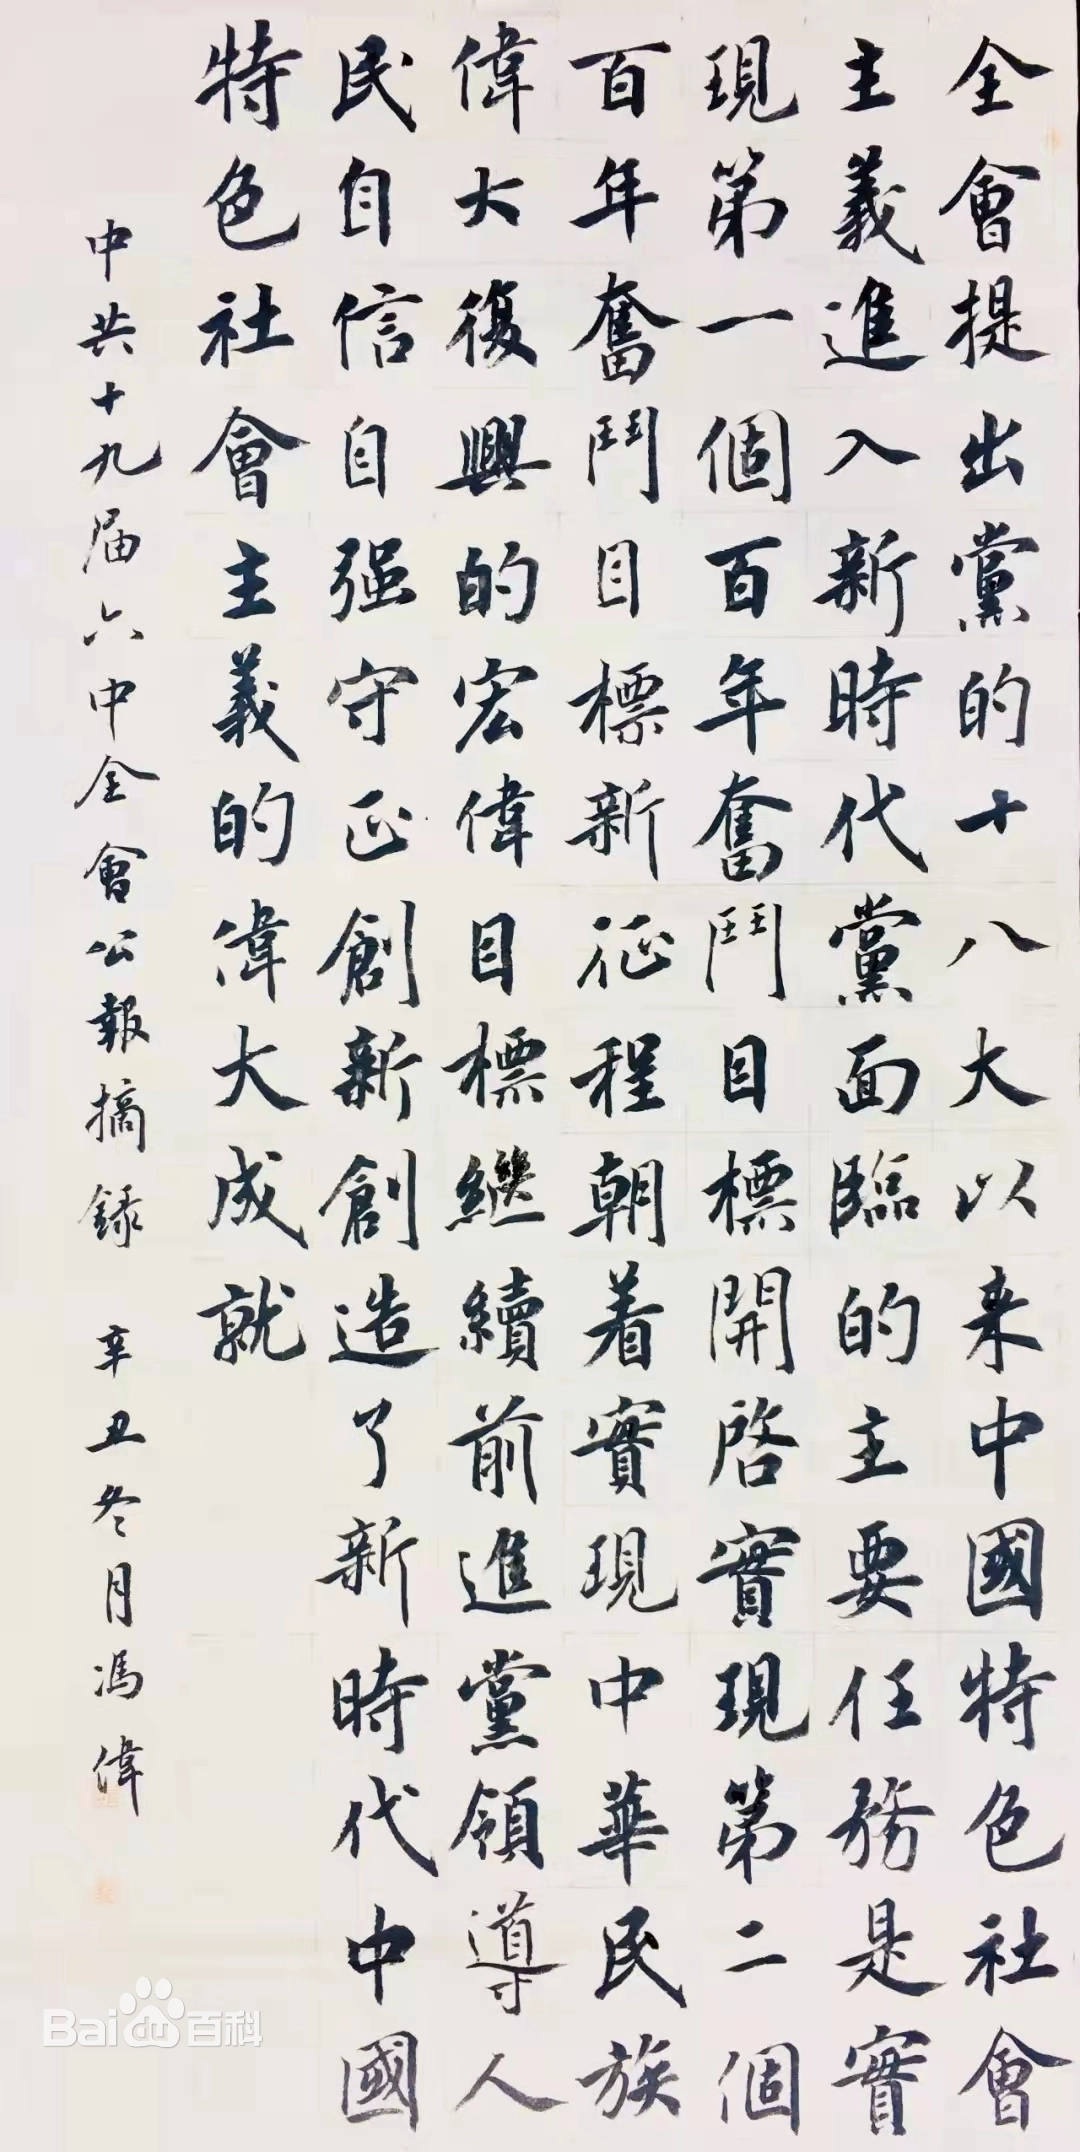 全會提出黨的十八大以来中國特色社會
主義進入新時代黨面臨的主要任務是實
現第一個百年奮鬥目標開啓實現第二個
百年奮鬥目標新征程朝着實現中華民族
偉大復興的宏偉目標繼續前進黨領導人
民自信自强守正創新創造了新時代中國
特色社會主義的偉大成就
中共十九届六中全會公報摘録 辛丑冬月馮偉
Bai百科